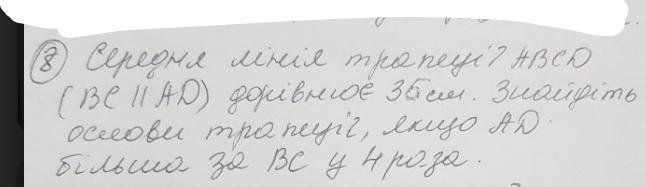 8 Середня лінія трапеції ABCD
(BC || AD) дорівнює 35см. Знайдіть
основи трапеції, якщо AD
більша за BC у 4 раза.